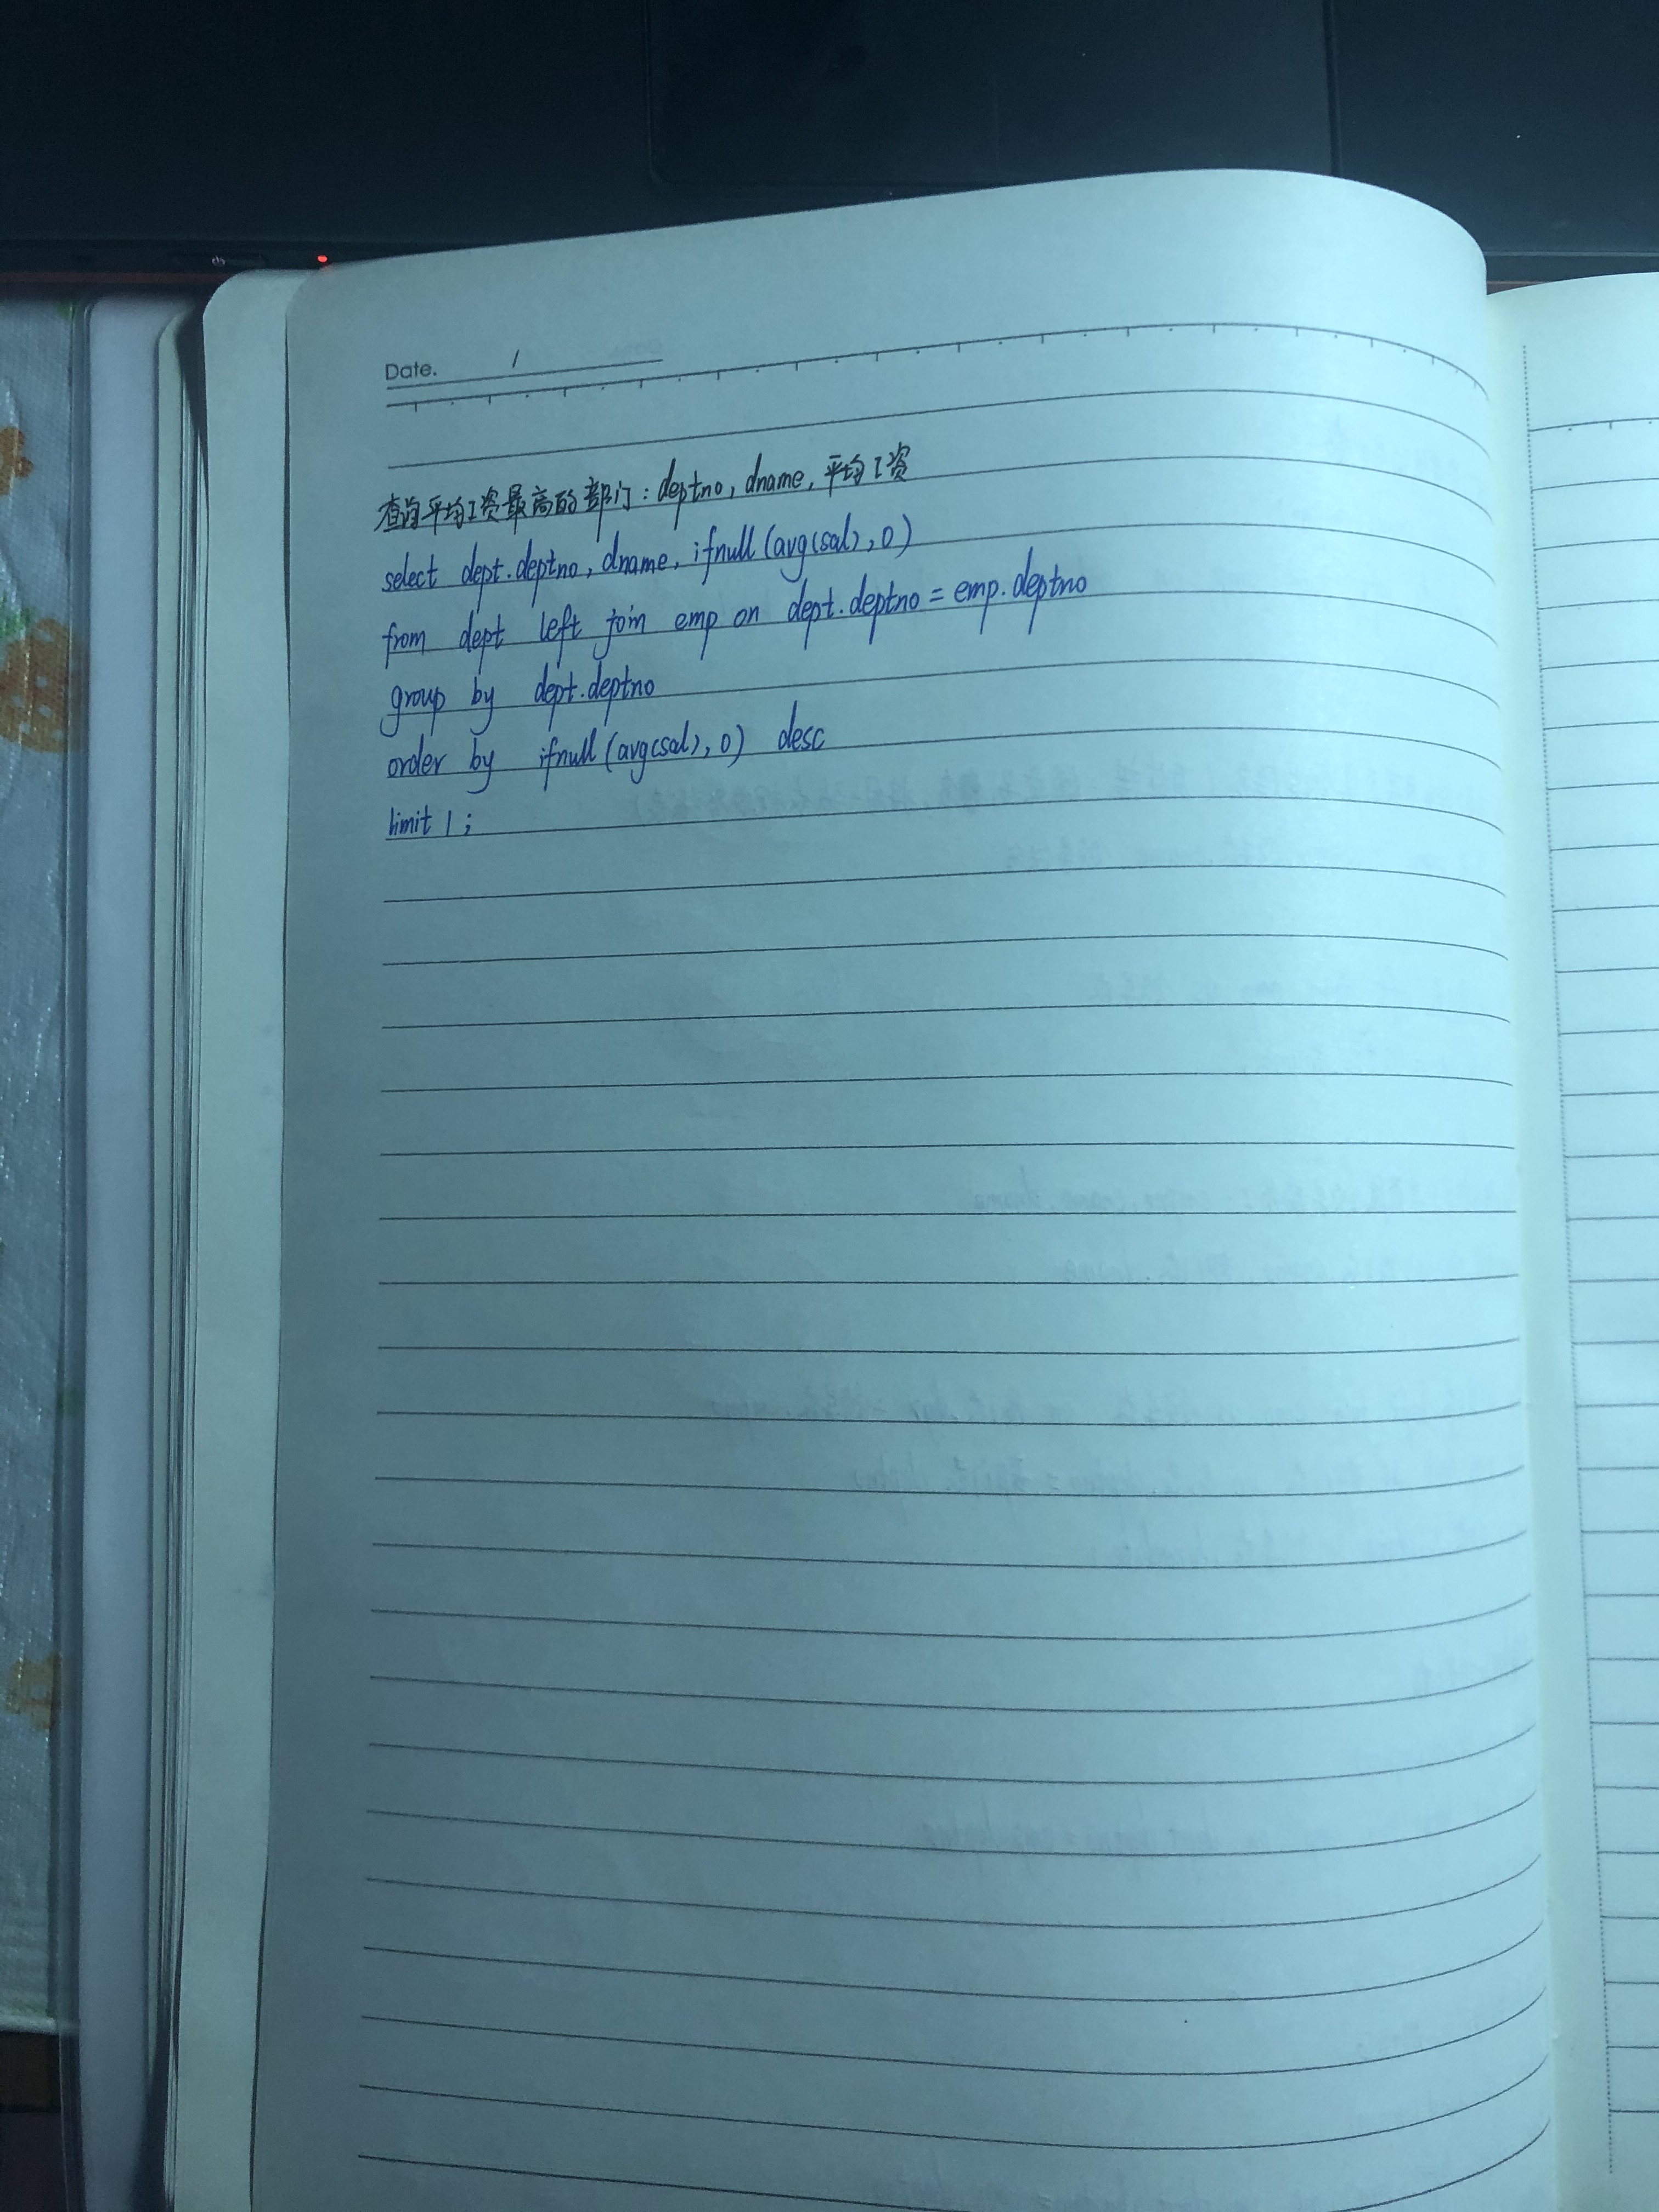 Date. /
查询平均工资最高的部门：deptno, dname, 平均工资
select dept.deptno, dname, ifnull(avg(sal), 0)
from dept left join emp on dept.deptno = emp.deptno
group by dept.deptno
order by ifnull(avg(sal), 0) desc
limit 1 ;